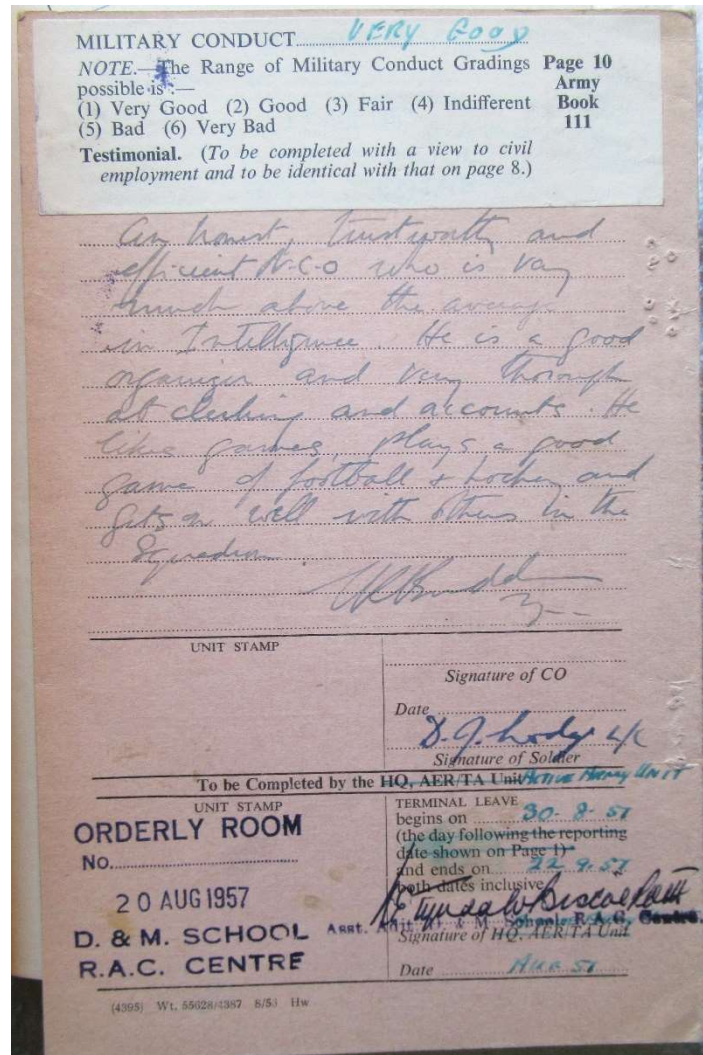 MILITARY CONDUCT VERY GOOD
NOTE.—The Range of Military Conduct Gradings
possible is :—
(1) Very Good (2) Good (3) Fair (4) Indifferent
(5) Bad (6) Very Bad
Page 10
Army
Book
111
Testimonial. (To be completed with a view to civil
employment and to be identical with that on page 8.)
An honest, trustworthy and
efficient N.C.O who is very
much above the average
in Intelligence. He is a good
organizer and very thorough
at clerking and accounts. He
likes games, plays a good
game of football + hockey and
gets on well with others in the
Squadron.
UNIT STAMP
Signature of CO
Date
D. J. L/C
Signature of Soldier
To be Completed by the HQ, AER/TA Unit ACTIVE ARMY UNIT
UNIT STAMP
ORDERLY ROOM
No.
20 AUG 1957
D. & M. SCHOOL
R.A.C. CENTRE
TERMINAL LEAVE
begins on 30-8-57
(the day following the reporting
date shown on Page 1)
and ends on 22 9.57
both dates inclusive
Asst. Adjt D. & M. School, R.A.C. Centre.
Signature of HQ, AER/TA Unit
Date AUG 57
(4395) Wt. 55628/4387 8/53 Hw